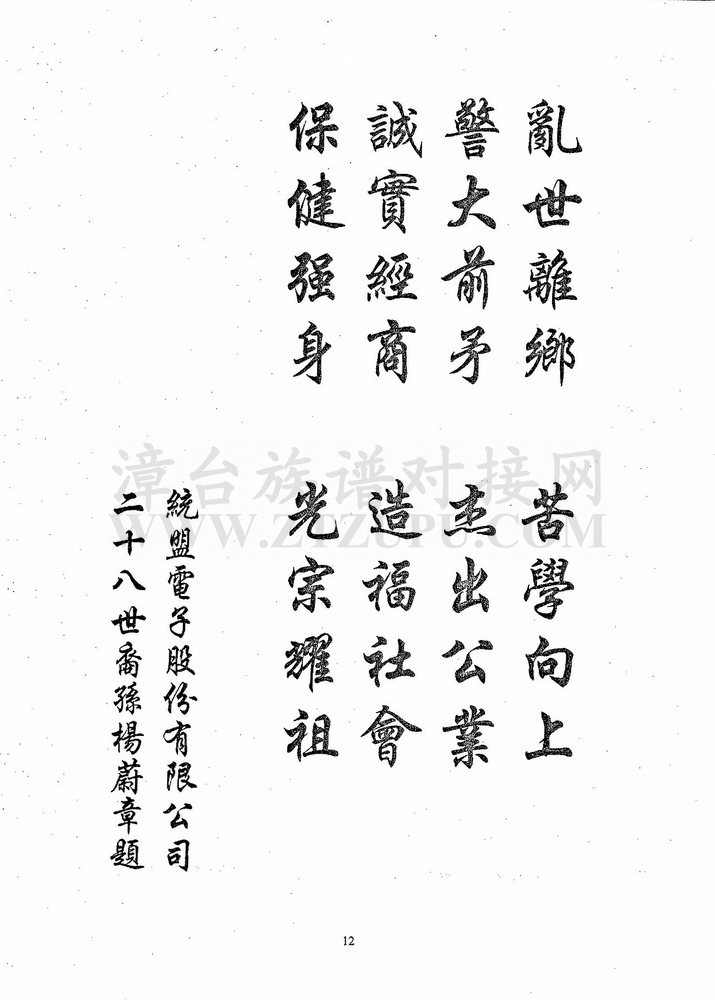 亂世離鄉 苦學向上
警大前矛 杰出公業
誠實經商 造福社會
保健强身 光宗耀祖
統盟電子股份有限公司
二十八世裔孫楊蔚章題
漳台族谱对接网
WWW.ZTZUPU.COM
12